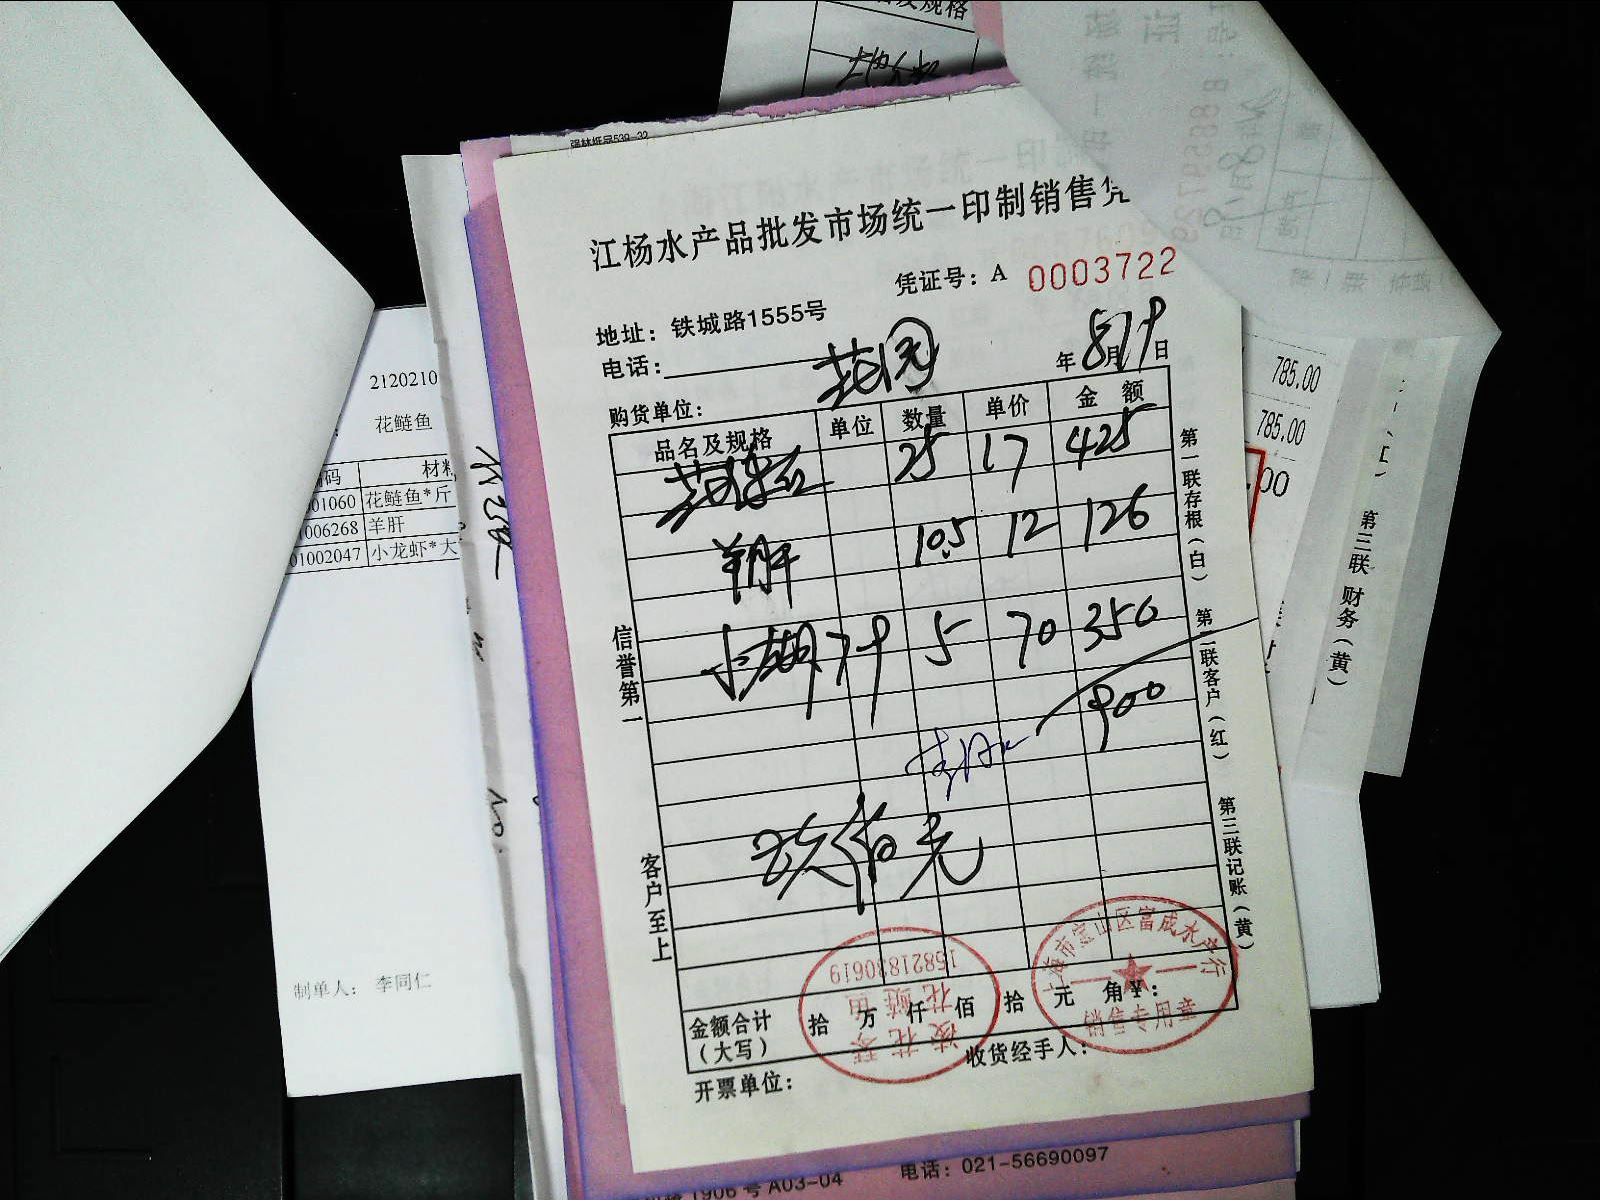 及规格
强林纸品539-32
江杨水产品批发市场统一印制销售凭
凭证号：A 0003722
地址：铁城路1555号
电话：
年 8月19日
购货单位： 花园
品名及规格 单位 数量 单价 金额
花鲢 25 17 425
羊肝 10.5 12 126
小龙虾 7-9 5 70 350
900
玖佰元
信誉第一
客户至上
第一联存根（白）
第二联客户（红）
第三联记账（黄）
金额合计（大写） 拾 万 仟 佰 拾 元 角 ¥：
开票单位：
收货经手人：
15821880619
花鲢鱼
上海市宝山区富成水产行
销售专用章
2120210
花鲢鱼
码 材料
01060 花鲢鱼*斤
006268 羊肝
01002047 小龙虾*大
制单人： 李同仁
785.00
785.00
.00
第三联 财务（黄）
1906号A03-04
电话：021-56690097